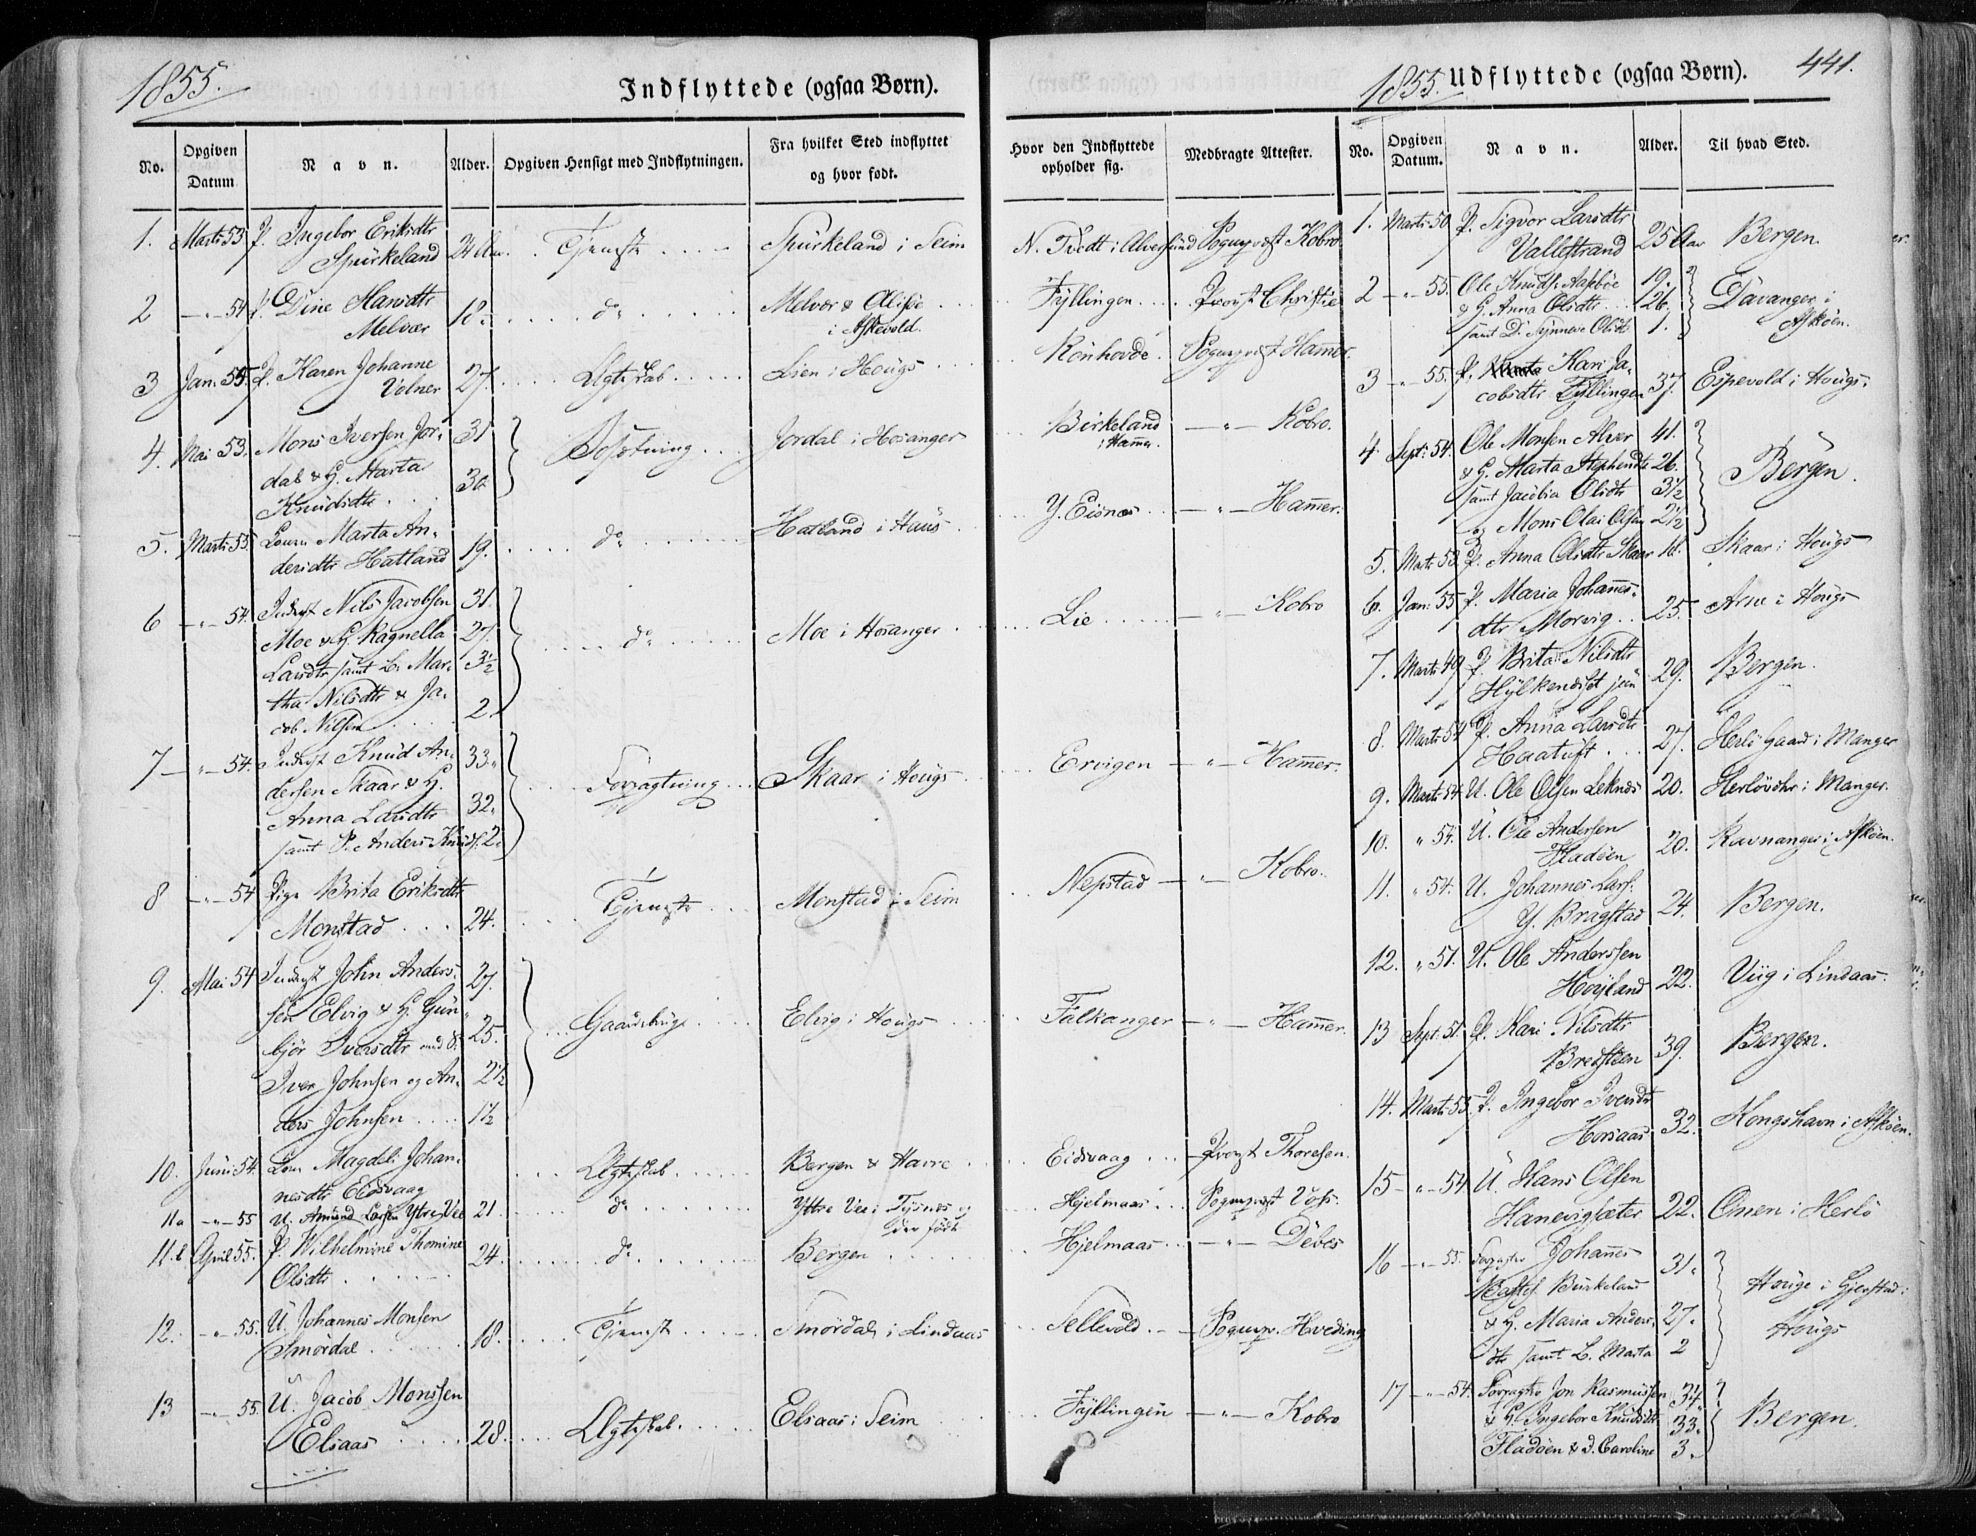 1855.
Indflyttede (ogsaa Børn).
No. Opgiven Datum Navn. Alder. Opgiven Hensigt med Indflytningen. Fra hvilket Sted indflyttet og hvor født. Hvor den Indflyttede opholder sig. Medbragte Attester.
1. Marts 53 P. Ingebor Eriksdtr Spurkeland 24 Aar. Tjeneste Spurkeland i Seim N. Tvedt i Alversund Sogneprest Kobro
2 -"- 54 P. Dine Hansdtr Melvær 18. do Melvær & Alisøe i Askevold. Fyllingen Provst Christie
3 Jan. 55 P. Karen Johanne Volner 27. Ægteskab Lien i Hougs Rønhovde. Sogneprest Hamer.
4. Mai 53. Mons Iversen Jor-
dal & H. Marta
Knudsdtr 31 30 Bosætning Jordal i Hosanger Birkeland i Hamer. -"- Kobro.
5. Marts 55. Marta An-
dersdtr Hatland 19. do Hatland i Huus Y. Eisnæs -"- Hamer.
6 -"- 54. Inderst Nils Jacobsen 31.
Moe & H. Ragnella 27.
Larsdtr samt B. Mar- 3½
tha Nilsdtr & Ja-
cob Nilsen 2. do Moe i Hosanger Lie -"- Kobro
7 -"- 54. Inderst Knud An- 33.
dersen Skaar & H.
Anna Larsdtr 32.
samt P. Anders Knuds. 2. Forpagtning Skaar i Hougs Ervigen -"- Hamer.
8 -"- 54 Pige Brita Eriksdtr
Monstad 24. Tjeneste Monstad i Seim Nepstad -"- Kobro.
9. Mai 54 Inderst John Anders- 27.
sen Elvig & H. Gun-
bjør Iversdtr med B. 25.
Iver Johnsen og An- 2½
ders Johnsen 1½ Gaardsbrug Elvig i Hougs Falkanger -"- Hamer.
10. Juni 54. Magdeli Johan-
nesdtr Eidsvaag Ægteskab Bergen & Havre Eidsvaag Provst Thoresen.
11a -"- 55 U. Amund Larsen Ytre Vee 21. do Yttre Vee i Tysnæs og der født Hjelmaas Sogneprest Voss.
11.b April 55. P. Wilhelmine Thomine
Olsdtr 24. do Bergen Hjelmaas -"- Debes
12. -"- 55. U. Johannes Monsen
Smørdal 18. Tjeneste Smørdal i Lindaas Sellevold Sognepr. Hveding
13 -"- 55. U. Jacob Monssen
Elsaas 28. Ægteskab. Elsaas i Seim Fyllingen -"- Kobro
1855. Udflyttede (ogsaa Børn). 441.
No. Opgiven Datum. Navn. Alder. Til hvad Sted.
1. Marts 50 P. Sigvor Larsdtr
Vallestrand 25 Aar Bergen.
2 -"- 55. Ole Knuds. Aasebøe 19.
& H. Anna Olsdtr 26.
samt D. Synneve Olsdtr 1. Davanger i Askøen.
3 -"- 55. P. Kari Ja-
cobsdtr Fyllingen 37. Espevold i Hougs.
4 Sept. 54. Ole Monsen Alver 41.
& H. Marta Stephensdtr 26.
samt Jacobia Olsdtr 3½
og Mons Olai Olsen 2½ Bergen.
5. Marts 53. P. Anna Olsdtr Skaar 18. Skaar i Hougs
6. Jan. 55 P. Maria Johannes-
dtr Morvig 25. Arne i Hougs
7. Marts 49 P. Brita Nilsdtr
Hylkenæset jun 29. Bergen.
8. Marts 54 P. Anna Larsdtr
Haatuft 27. Herlø Gaard i Manger
9. Marts 54 U. Ole Olsen Leknæs 20. Herløvohr i Manger.
10. " 54. U. Ole Andersen
Fladøen 20. Ravnanger i Askøen.
11. " 54. U. Johannes Lars.
Y. Bragstad 24. Bergen.
12. " 51. U. Ole Anderssen
Høyland 22. Viig i Lindaas.
13 Sept. 51. P. Kari Nilsdtr
Bredsteen 39. Bergen.
14. Marts 55. P. Ingebor Iversdtr
Horsaas 32. Kongshavn i Askøen.
15 -"- 54 U. Hans Olsen
Hanevigsæter 22. Omen i Herlø
16 -"- 55. Forpagter Johannes 31.
Matts. Birkeland
& H. Maria Anders- 27.
dtr samt B. Marta 2 Houge i Gjerstad i Hougs
17 -"- 54. Forpagter Jon Rasmussen 34
& H. Ingebor Knudsdtr 33.
Fladøen & D. Caroline 3. Bergen.